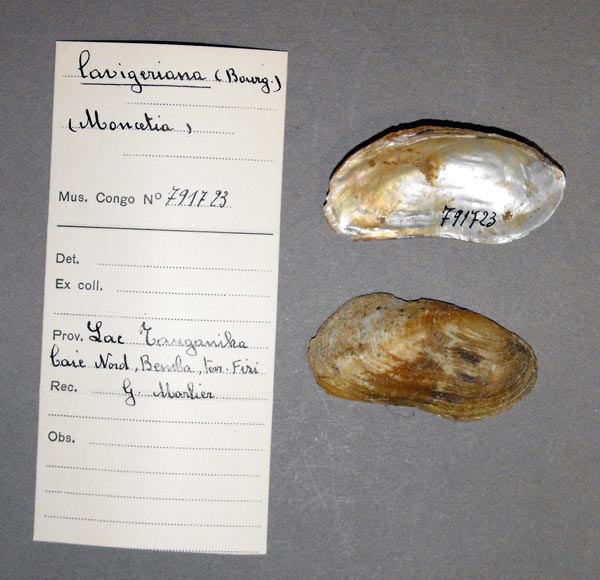 lavigeriana (Bourg.)
(Moncetia)
Mus. Congo No 791723
Det.
Ex coll.
Prov. Lac Tanganika
Baie Nord, Bemba, terr. Fizi
Rec. G. Marlier
Obs.
791723